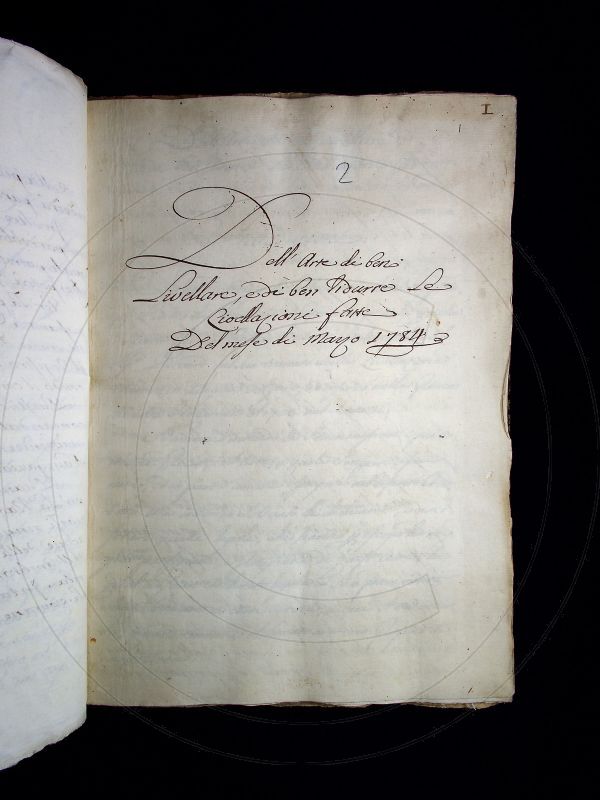 1
2
Dell' Arte di ben
Livellare, e di ben ridurre Le
Livellazioni fatte
Del mese di Marzo 1784